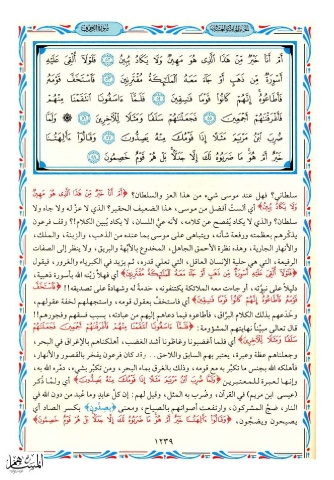 أَمْ أَنَا۠ خَيْرٌ مِّنْ هَٰذَا ٱلَّذِى هُوَ مَهِينٌ وَلَا يَكَادُ يُبِينُ ۝ فَلَوْلَآ أُلْقِىَ عَلَيْهِ
أَسْوِرَةٌ مِّن ذَهَبٍ أَوْ جَآءَ مَعَهُ ٱلْمَلَٰٓئِكَةُ مُقْتَرِنِينَ ۝ فَٱسْتَخَفَّ قَوْمَهُۥ
فَأَطَاعُوهُ ۚ إِنَّهُمْ كَانُوا۟ قَوْمًا فَٰسِقِينَ ۝ فَلَمَّآ ءَاسَفُونَا ٱنتَقَمْنَا مِنْهُمْ
فَأَغْرَقْنَٰهُمْ أَجْمَعِينَ ۝ فَجَعَلْنَٰهُمْ سَلَفًا وَمَثَلًا لِّلْءَاخِرِينَ ۝ وَلَمَّا
ضُرِبَ ٱبْنُ مَرْيَمَ مَثَلًا إِذَا قَوْمُكَ مِنْهُ يَصِدُّونَ ۝ وَقَالُوٓا۟ ءَأَٰلِهَتُنَا
خَيْرٌ أَمْ هُوَ ۚ مَا ضَرَبُوهُ لَكَ إِلَّا جَدَلًۢا ۚ بَلْ هُمْ قَوْمٌ خَصِمُونَ ۝
سلطاني؟ فهل عند موسى شيء من هذا العز والسلطان؟ ﴿أَمْ أَنَا خَيْرٌ مِّنْ هَذَا الَّذِي هُوَ مَهِينٌ
وَلَا يَكَادُ يُبِينُ﴾ أي ألست أفضل من موسى، هذا الضعيف الحقير، الذي لا عزَّ له ولا جاه ولا
سلطان؟ والذي لا يكاد يُفصح عن كلامه، لأنه عيُّ اللسان، لا يكاد يُبين الكلام؟! وقف فرعون
يذكّرهم بعظمته ورفعة شأنه، ويتباهى على موسى بما عنده من الذهب، والزينة، والملك،
والأنهار الجارية، وهذه نظرة الأحمق الجاهل، المخدوع بالأبهة والبريق، ولا ينظر إلى الصفات
الرفيعة، التي هي حلية الإنسان العاقل، التي تعلي قدره، ثم يزيد في الكبرياء والغرور، فيقول
﴿فَلَوْلَا أُلْقِيَ عَلَيْهِ أَسْوِرَةٌ مِّن ذَهَبٍ أَوْ جَاءَ مَعَهُ الْمَلَائِكَةُ مُقْتَرِنِينَ﴾ أي فهلَّا زيَّنه الله بأسورة ذهبية،
دليلاً على نبوّته، أو جاءت معه الملائكة يكتنفونه، خدمةً له وشهادة على تصديقه!! ﴿فَاسْتَخَفَّ
قَوْمَهُ فَأَطَاعُوهُ إِنَّهُمْ كَانُوا قَوْمًا فَاسِقِينَ﴾ أي فاستخفَّ بعقول قومه، واستجهلهم لخفة عقولهم،
وخدعهم بذلك الكلام البرَّاق، فأطاعوه فيما دعاهم إليه من خيانته، بسبب فسقهم وفجورهم!!
قال تعالى مبيِّناً نهايتهم المشؤومة: ﴿فَلَمَّا آسَفُونَا انتَقَمْنَا مِنْهُمْ فَأَغْرَقْنَاهُمْ أَجْمَعِينَ فَجَعَلْنَاهُمْ
سَلَفًا وَمَثَلًا لِّلْآخِرِينَ﴾ أي فلما أغضبونا وغاظونا أشد الغضب، أهلكناهم بالإغراق في البحر،
وجعلناهم عظة وعبرة، يعتبر بهم السابق واللاحق.. وقد كان فرعون يفخر بالقصور والأنهار،
فأهلكه الله بجنس ما تكبّر به مع قومه، وذلك بالغرق بماء البحر، ومن تكبَّر بشيء، دمَّره الله به،
وإنها لعبرة للمعتبرين ﴿وَلَمَّا ضُرِبَ ابْنُ مَرْيَمَ مَثَلًا إِذَا قَوْمُكَ مِنْهُ يَصِدُّونَ﴾ أي ولمَّا ذُكر
(عيسى ابن مريم) في القرآن، وضُرب به المثل، وقيل لهم: إن كلَّ عابدٍ وما عُبد من دون الله في
النار، ضجَّ المشركون، وارتفعت أصواتهم بالصياح، ومعنى ﴿يصِدُّون﴾ بكسر الصاد أي
يصيحون ويضجُّون، ﴿وَقَالُوا أَآلِهَتُنَا خَيْرٌ أَمْ هُوَ مَا ضَرَبُوهُ لَكَ إِلَّا جَدَلًا بَلْ هُمْ قَوْمٌ خَصِمُونَ﴾
١٢٣٩